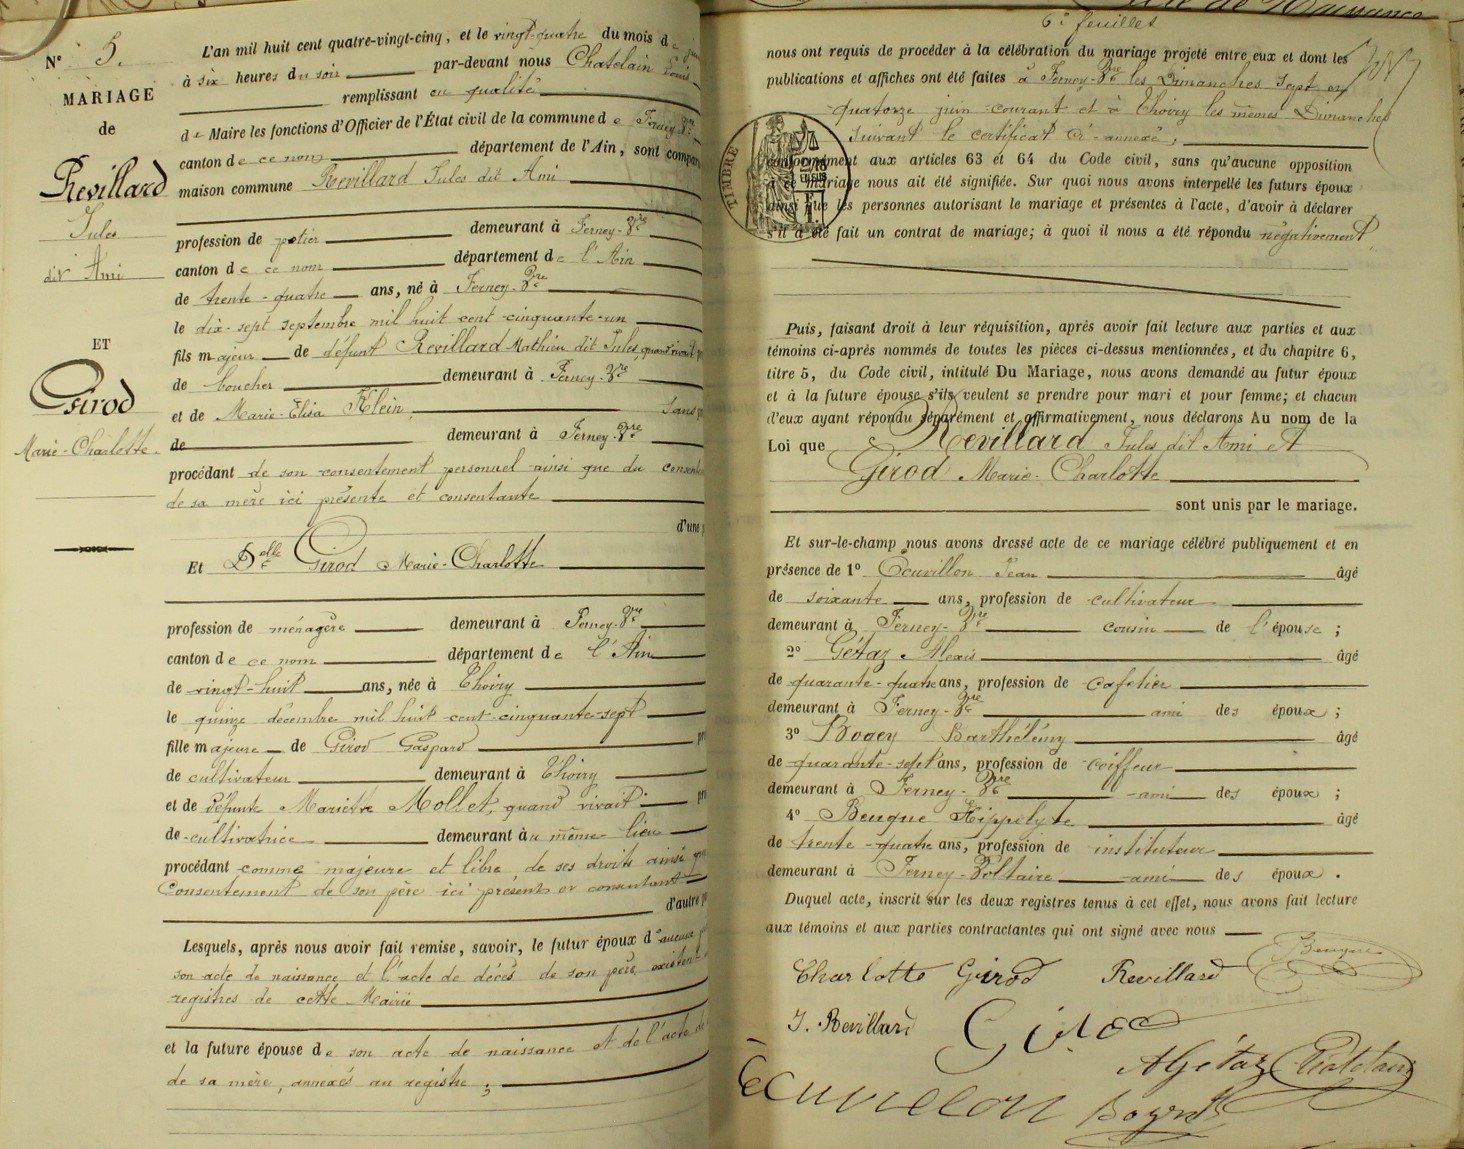 N° 5.
MARIAGE
de
Revillard
Jules
dit Ami
ET
Girod
Marie-Charlotte.
L'an mil huit cent quatre-vingt-cinq, et le vingt-quatre du mois de
à six heures du soir par-devant nous Chatelain Louis
remplissant en qualité
de Maire les fonctions d'Officier de l'État civil de la commune de Ferney-Vre
canton de ce nom département de l'Ain, sont compar
maison commune Revillard Jules dit Ami
profession de potier demeurant à Ferney-Vre
canton de ce nom département de l'Ain
de trente-quatre ans, né à Ferney-Vre
le dix-sept septembre mil huit cent cinquante-un
fils majeur de défunt Revillard Mathieu dit Jules, quand vivait
de boucher demeurant à Ferney-Vre
et de Marie-Elisa Klein Sans
de demeurant à Ferney-Vre
procédant de son consentement personnel ainsi que du consen
de sa mère ici présente et consentante
d'une
Et Delle Girod Marie-Charlotte
profession de ménagère demeurant à Ferney-Vre
canton de ce nom département de l'Ain
de vingt-huit ans, née à Thoiry
le quinze décembre mil huit cent cinquante-sept
fille majeure de Girod Gaspard
de cultivateur demeurant à Thoiry
et de défunte Mariette Mollet, quand vivait
de cultivatrice demeurant au même lieu
procédant comme majeure et libre de ses droits ainsi
Consentement de son père ici présent et consentant
d'autre
Lesquels, après nous avoir fait remise, savoir, le futur époux d'aucune
son acte de naissance et l'acte de décès de son père existent
registres de cette Mairie
et la future épouse de son acte de naissance et de l'acte de
de sa mère, annexés au registre ;
6e feuilles
nous ont requis de procéder à la célébration du mariage projeté entre eux et dont les
publications et affiches ont été faites à Ferney-Vre les Dimanches sept et
quatorze juin courant et à Thoiry les mêmes Dimanches
suivant le certificat ci-annexé,
conformément aux articles 63 et 64 du Code civil, sans qu'aucune opposition
à ce mariage nous ait été signifiée. Sur quoi nous avons interpellé les futurs époux
ainsi que les personnes autorisant le mariage et présentes à l'acte, d'avoir à déclarer
s'il a été fait un contrat de mariage; à quoi il nous a été répondu négativement
TIMBRE
Puis, faisant droit à leur réquisition, après avoir fait lecture aux parties et aux
témoins ci-après nommés de toutes les pièces ci-dessus mentionnées, et du chapitre 6,
titre 5, du Code civil, intitulé Du Mariage, nous avons demandé au futur époux
et à la future épouse s'ils veulent se prendre pour mari et pour femme; et chacun
d'eux ayant répondu séparément et affirmativement, nous déclarons Au nom de la
Loi que Revillard Jules dit Ami et
Girod Marie-Charlotte
sont unis par le mariage.
Et sur-le-champ nous avons dressé acte de ce mariage célébré publiquement et en
présence de 1° Ecuvillon Jean âgé
de soixante ans, profession de cultivateur
demeurant à Ferney-Vre cousin de l'épouse ;
2° Gétaz Alexis âgé
de quarante-quatre ans, profession de cafetier
demeurant à Ferney-Vre ami des époux ;
3° Bogey Barthélémy âgé
de quarante-sept ans, profession de coiffeur
demeurant à Ferney-Vre ami des époux ;
4° Benque Hippolyte âgé
de trente-quatre ans, profession de instituteur
demeurant à Ferney-Voltaire ami des époux .
Duquel acte, inscrit sur les deux registres tenus à cet effet, nous avons fait lecture
aux témoins et aux parties contractantes qui ont signé avec nous
Charlotte Girod Revillard Benque
J. Revillard Girod
AGétaz Chatelain
Ecuvillon Bogey